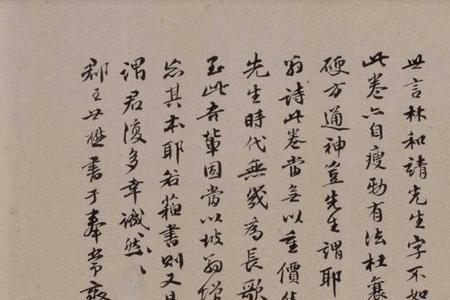 世言林和靖先生字不如
此卷亦自瘦勁有法杜襄
硬方通神豈先生謂耶
翁詩此卷當以重價
先生時代無幾為長歌
至此吾輩因當以坡翁增
忘其本耶若蘇書則又
謂君復多幸誠然〻
郡王世懋書于奉常齋